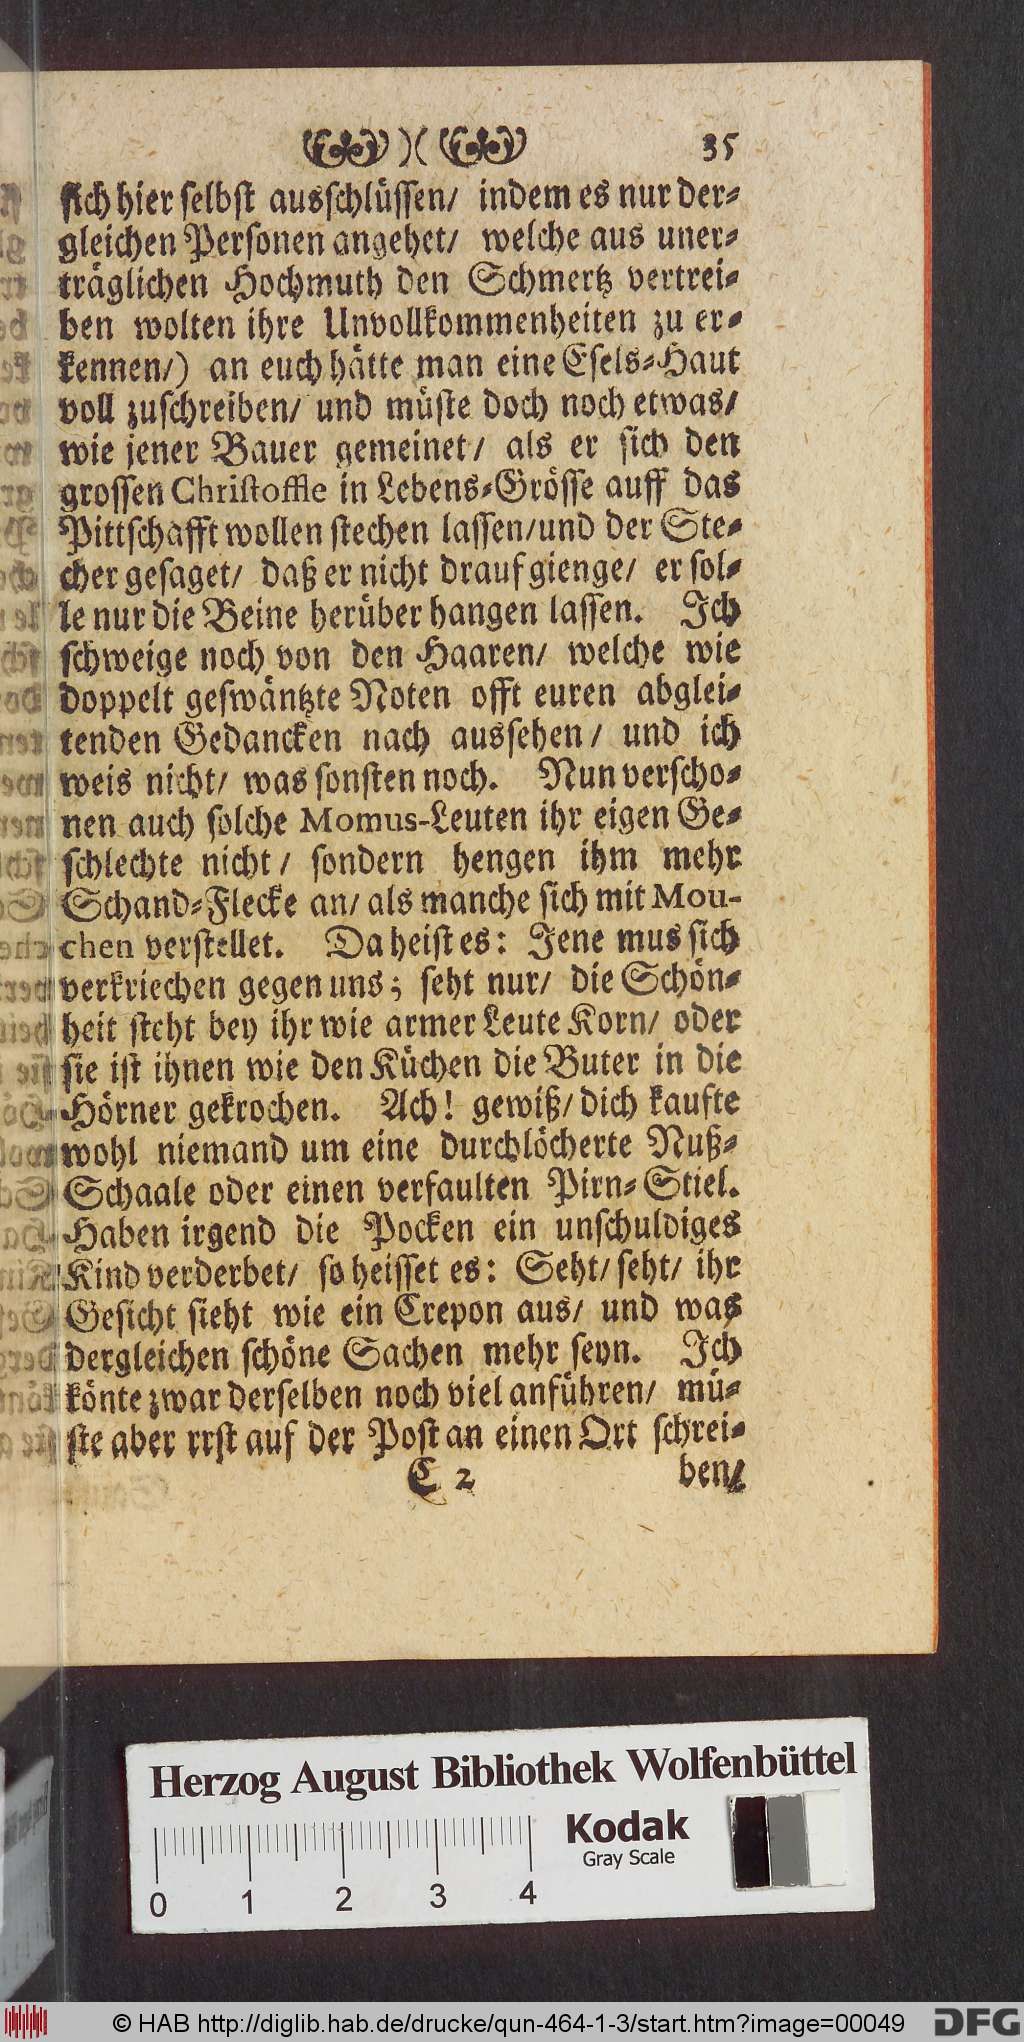 )( 35
sich hier selbst ausschlüssen/ indem es nur der-
gleichen Personen angehet/ welche aus uner-
träglichen Hochmuth den Schmertz vertrei-
ben wolten ihre Unvollkommenheiten zu er-
kennen/) an euch hätte man eine Esels-Haut
voll zuschreiben/ und müste doch noch etwas/
wie jener Bauer gemeinet/ als er sich den
grossen Christoffle in Lebens-Grösse auff das
Pittschafft wollen stechen lassen/und der Ste-
cher gesaget/ daß er nicht drauf gienge/ er sol-
le nur die Beine herüber hangen lassen. Ich
schweige noch von den Haaren/ welche wie
doppelt geswäntzte Noten offt euren abglei-
tenden Gedancken nach aussehen/ und ich
weis nicht/ was sonsten noch. Nun verscho-
nen auch solche Momus-Leuten ihr eigen Ge-
schlechte nicht/ sondern hengen ihm mehr
Schand-Flecke an/ als manche sich mit Mou-
chen verstellet. Da heist es: Jene mus sich
verkriechen gegen uns; seht nur/ die Schön-
heit steht bey ihr wie armer Leute Korn/ oder
sie ist ihnen wie den Küchen die Buter in die
Hörner gekrochen. Ach! gewiß/ dich kaufte
wohl niemand um eine durchlöcherte Nuß-
Schaale oder einen verfaulten Pirn-Stiel.
Haben irgend die Pocken ein unschuldiges
Kind verderbet/ so heisset es: Seht/ seht/ ihr
Gesicht sieht wie ein Crepon aus/ und was
dergleichen schöne Sachen mehr seyn. Ich
könte zwar derselben noch viel anführen/ mü-
ste aber rrst auf der Post an einen Ort schrei-
C 2 ben/
Herzog August Bibliothek Wolfenbüttel
Kodak
Gray Scale
0 1 2 3 4
© HAB http://diglib.hab.de/drucke/qun-464-1-3/start.htm?image=00049
DFG